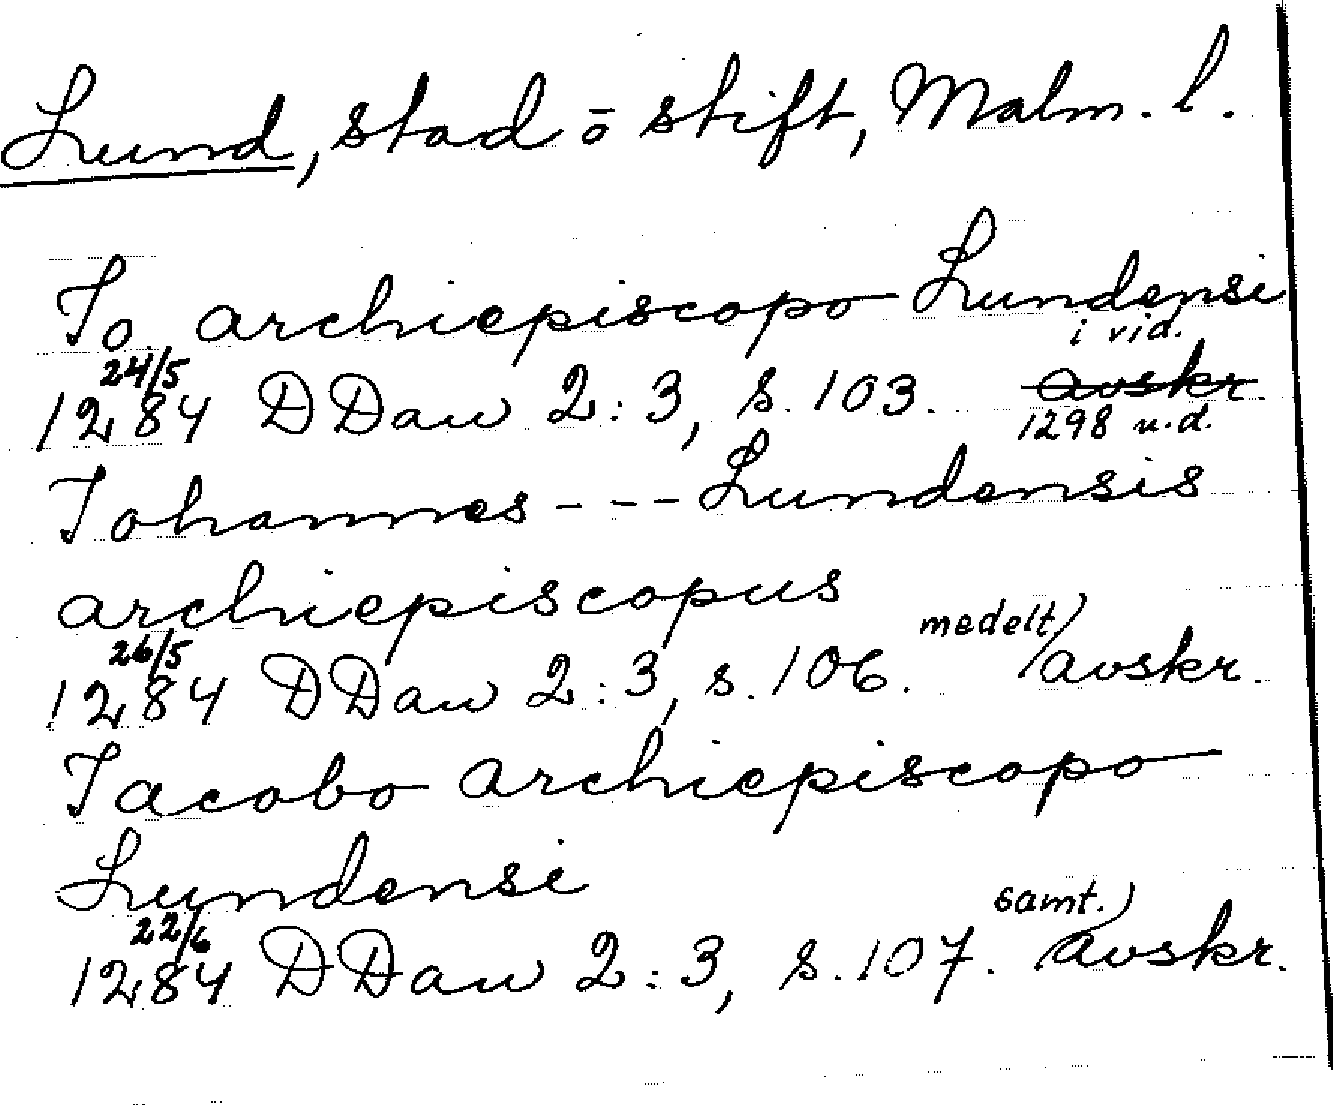 Lund, stad ō stift, Malm. l.
Io. archiepiscopo Lundensi
i vid.
24/5
1284 DDan 2:3, s. 103. avskr.
1298 u.d.
Iohannes --- Lundensis
archiepiscopus
26/5
1284 DDan 2:3, s. 106. medelt/avskr.
Iacobo archiepiscopo
Lundensi
22/6
1284 DDan 2:3, s. 107. samt.) avskr.